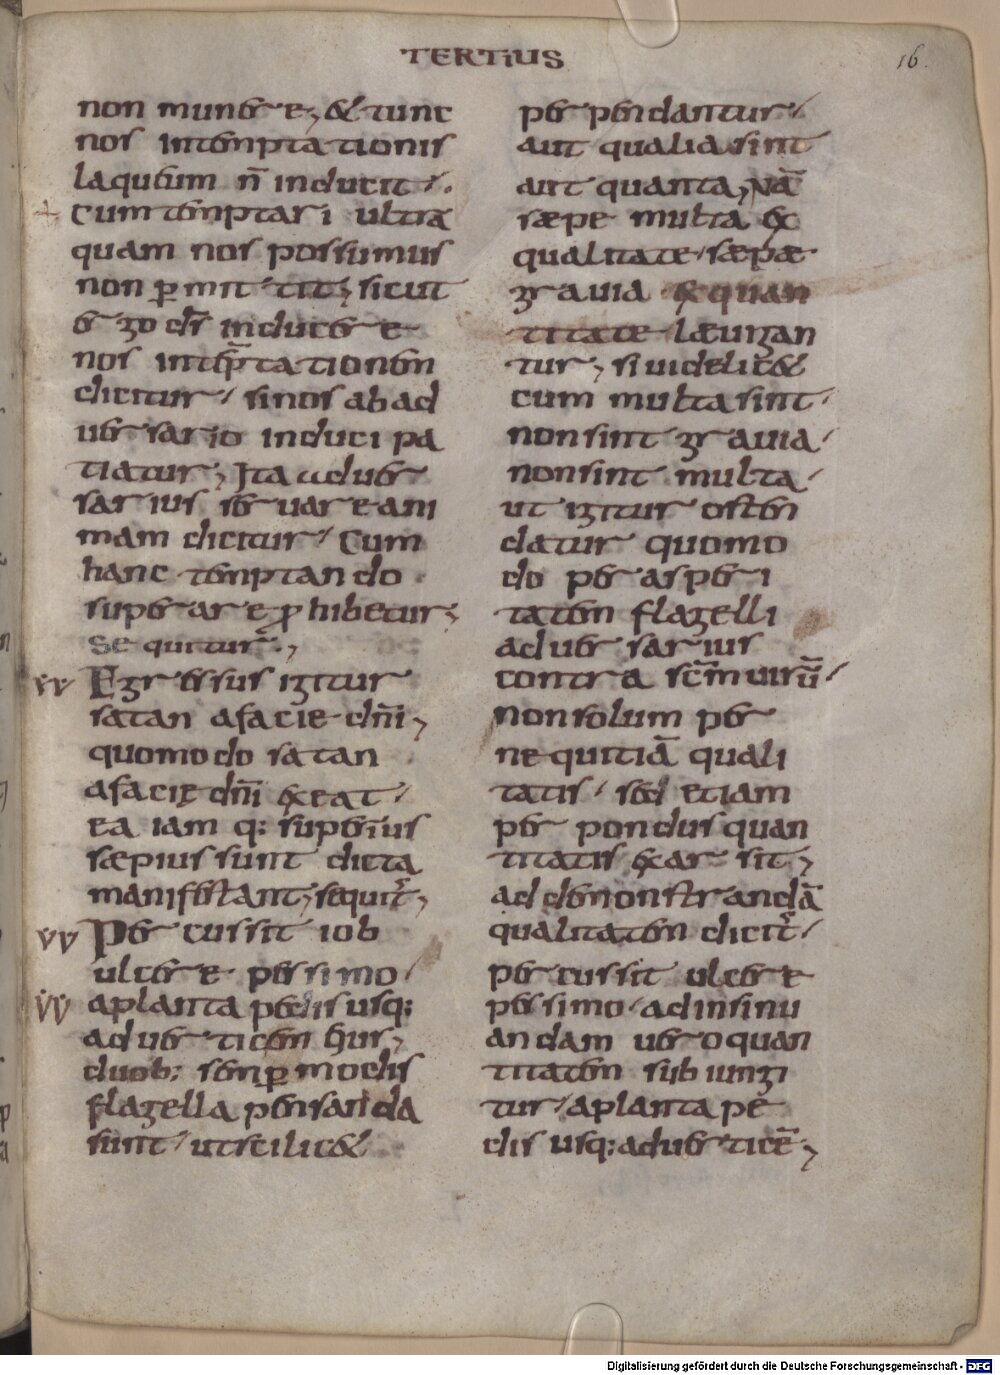 TERTIUS
16.
non munere; & tunc
nos in temptationis
laqueum n̄ inducit.
cum temptari ultra
quam nos possumus
non ꝑmittit; sicut
ergo ds̄ inducere
nos in tēptationem
dicitur, si nos ab ad
uersario induci pa
tiatur; Ita aduer
sarius seruare ani
mam dicitur, Cum
hanc temptando
superare ꝓhibetur;
Sequitur;
Egressus igitur
satan a facie dn̄i;
quomodo satan
a facię dn̄i exeat,
ea iam q: superius
sæpius sunt dicta
manifestant; sequit̄;
Percussit iob
ulcere pessimo,
a planta pedis usq:
ad uerticem eius;
duob: semꝑ modis
flagella pensanda
sunt, ut scilic&
perpendantur,
aut qualia sint
aut quanta; Nā
sæpe multa ex
qualitate, sæpæ
grauia ex quan
titate læuigan
tur; si uidelic&
cum multa sint,
non sint grauia,
non sint multa,
ut igitur osten
datur quomo
do per asperi
tatem flagelli
aduersarius
contra sc̄m uirū,
non solum per
nequitiā quali
tatis, sed etiam
per pondus quan
titatis exarsit;
ad demonstrandā
qualitatem dicit̄,
percussit ulcere
pessimo, ad insinu
andam uero quan
titatem subiungi
tur, a planta pe
dis usq: ad uerticē;
Digitalisierung gefördert durch die Deutsche Forschungsgemeinschaft - DFG